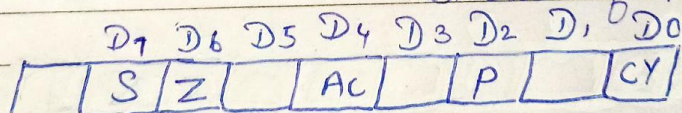 D7 D6 D5 D4 D3 D2 D1 D0
S Z AC P CY